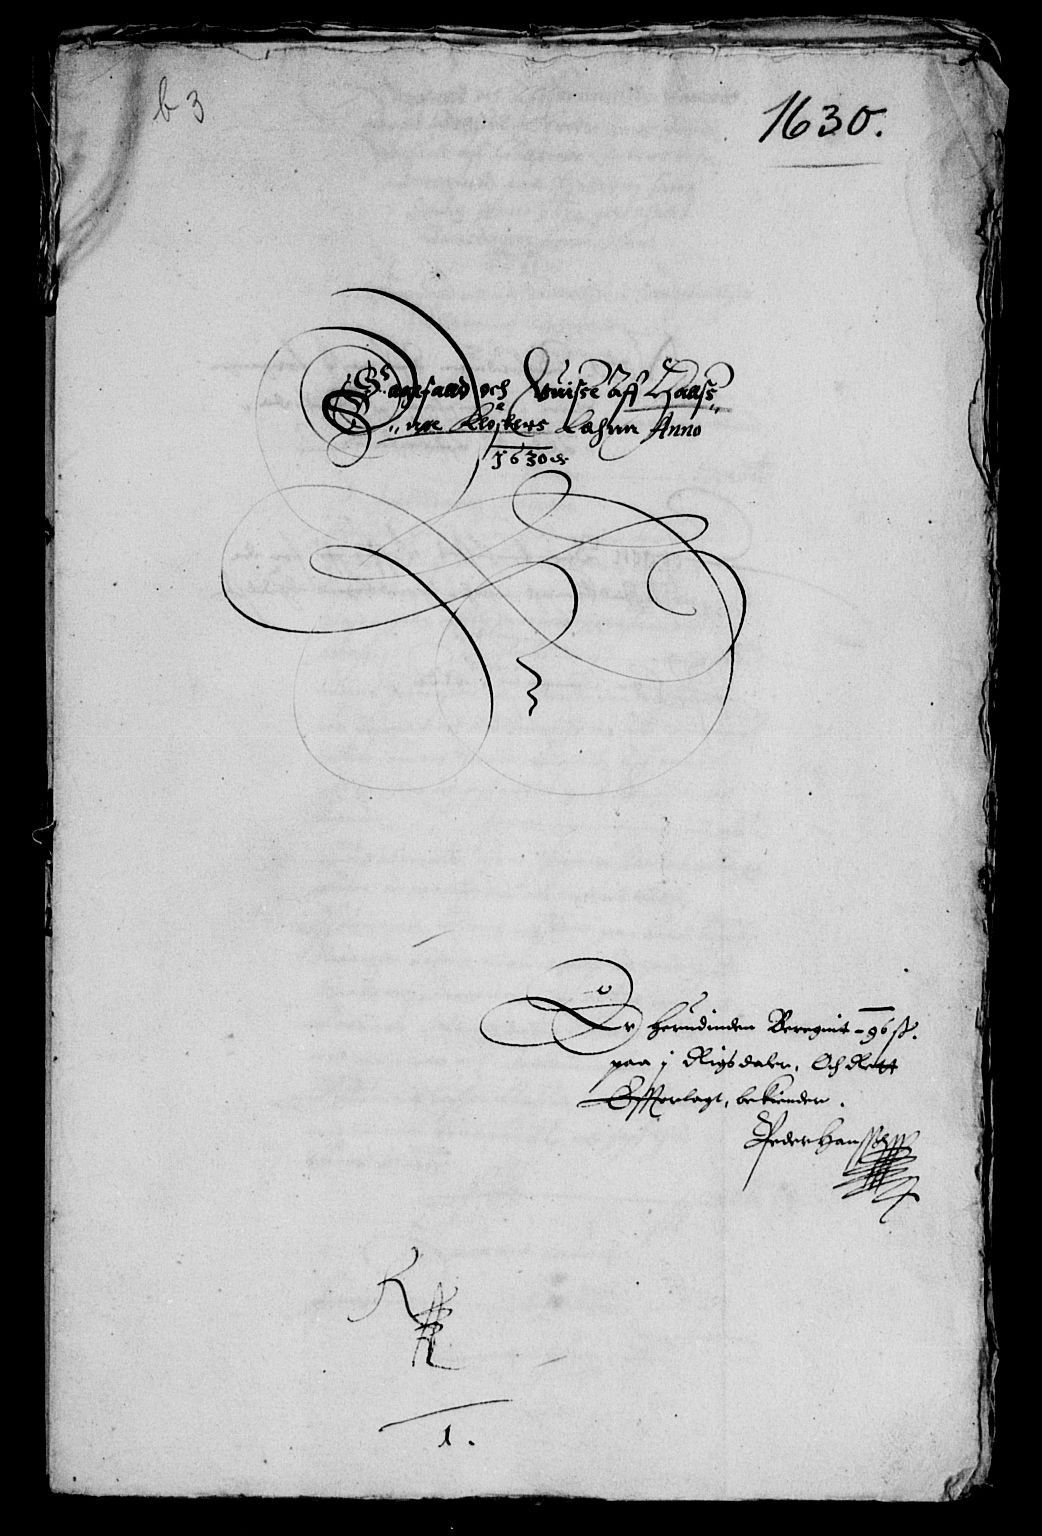 b 3
1630.
Sagefaad och Vuisse aff Haaff,,
,, ne Klosters Lahnn Anno
1630
Er herudinden Beregnit - 96 ß.
paa j Rigsdaler, Och Rett
Offuerlagt, bekiender.
Peder Hanssøn
1.